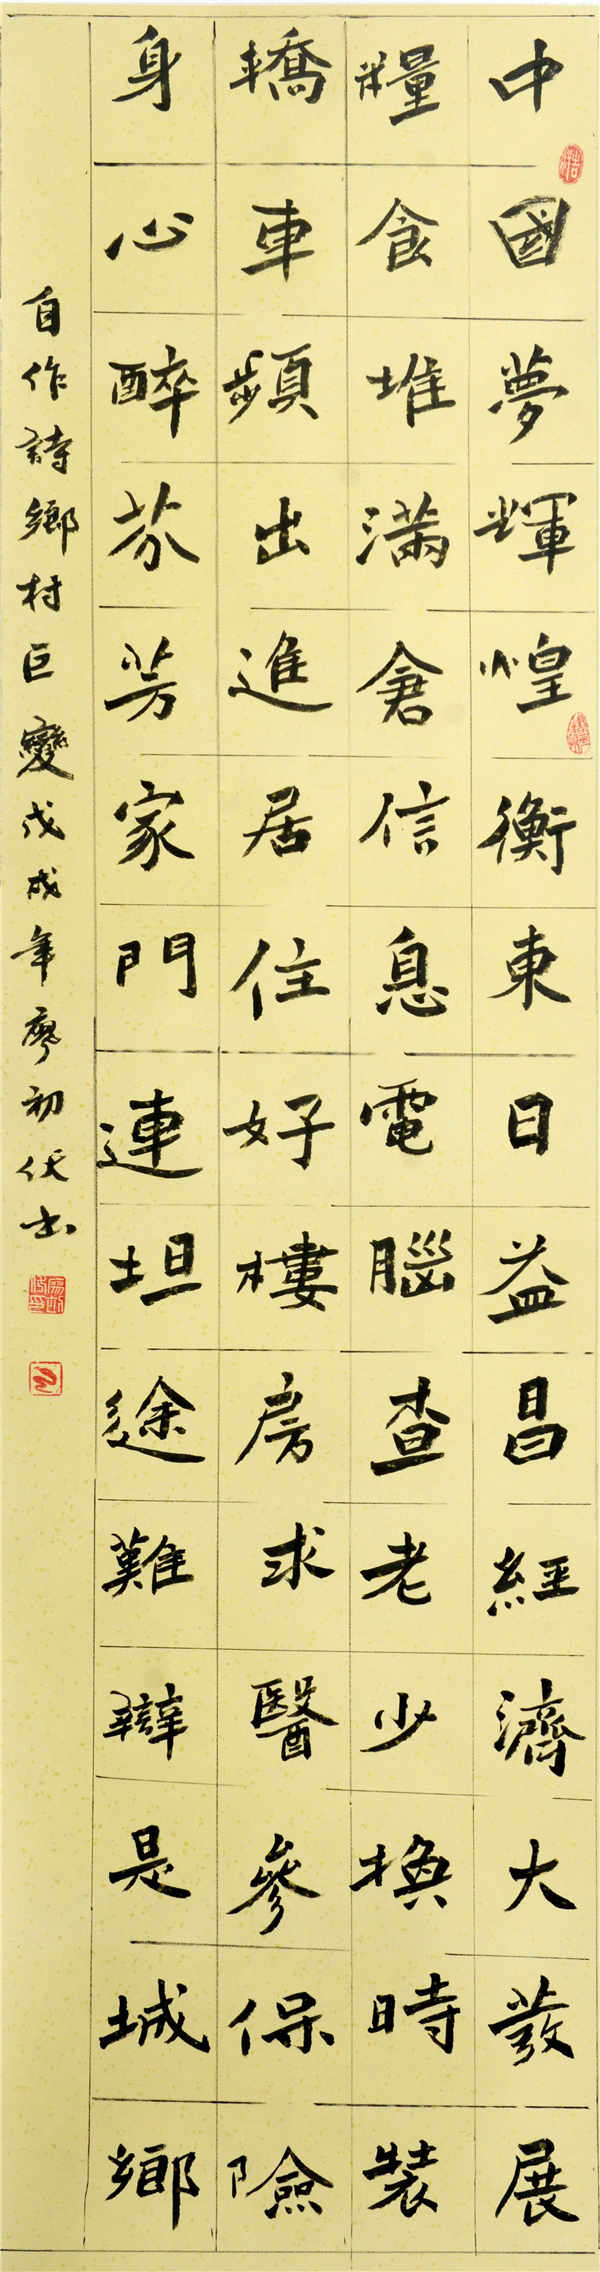 中國夢輝煌衡東日益昌經濟大發展
糧食堆滿倉信息電腦查老少換時裝
轎車頻出進居住好樓房求醫參保險
身心醉芬芳家門連坦途難辯是城鄉
自作詩鄉村巨變戊戌年廖初伏书